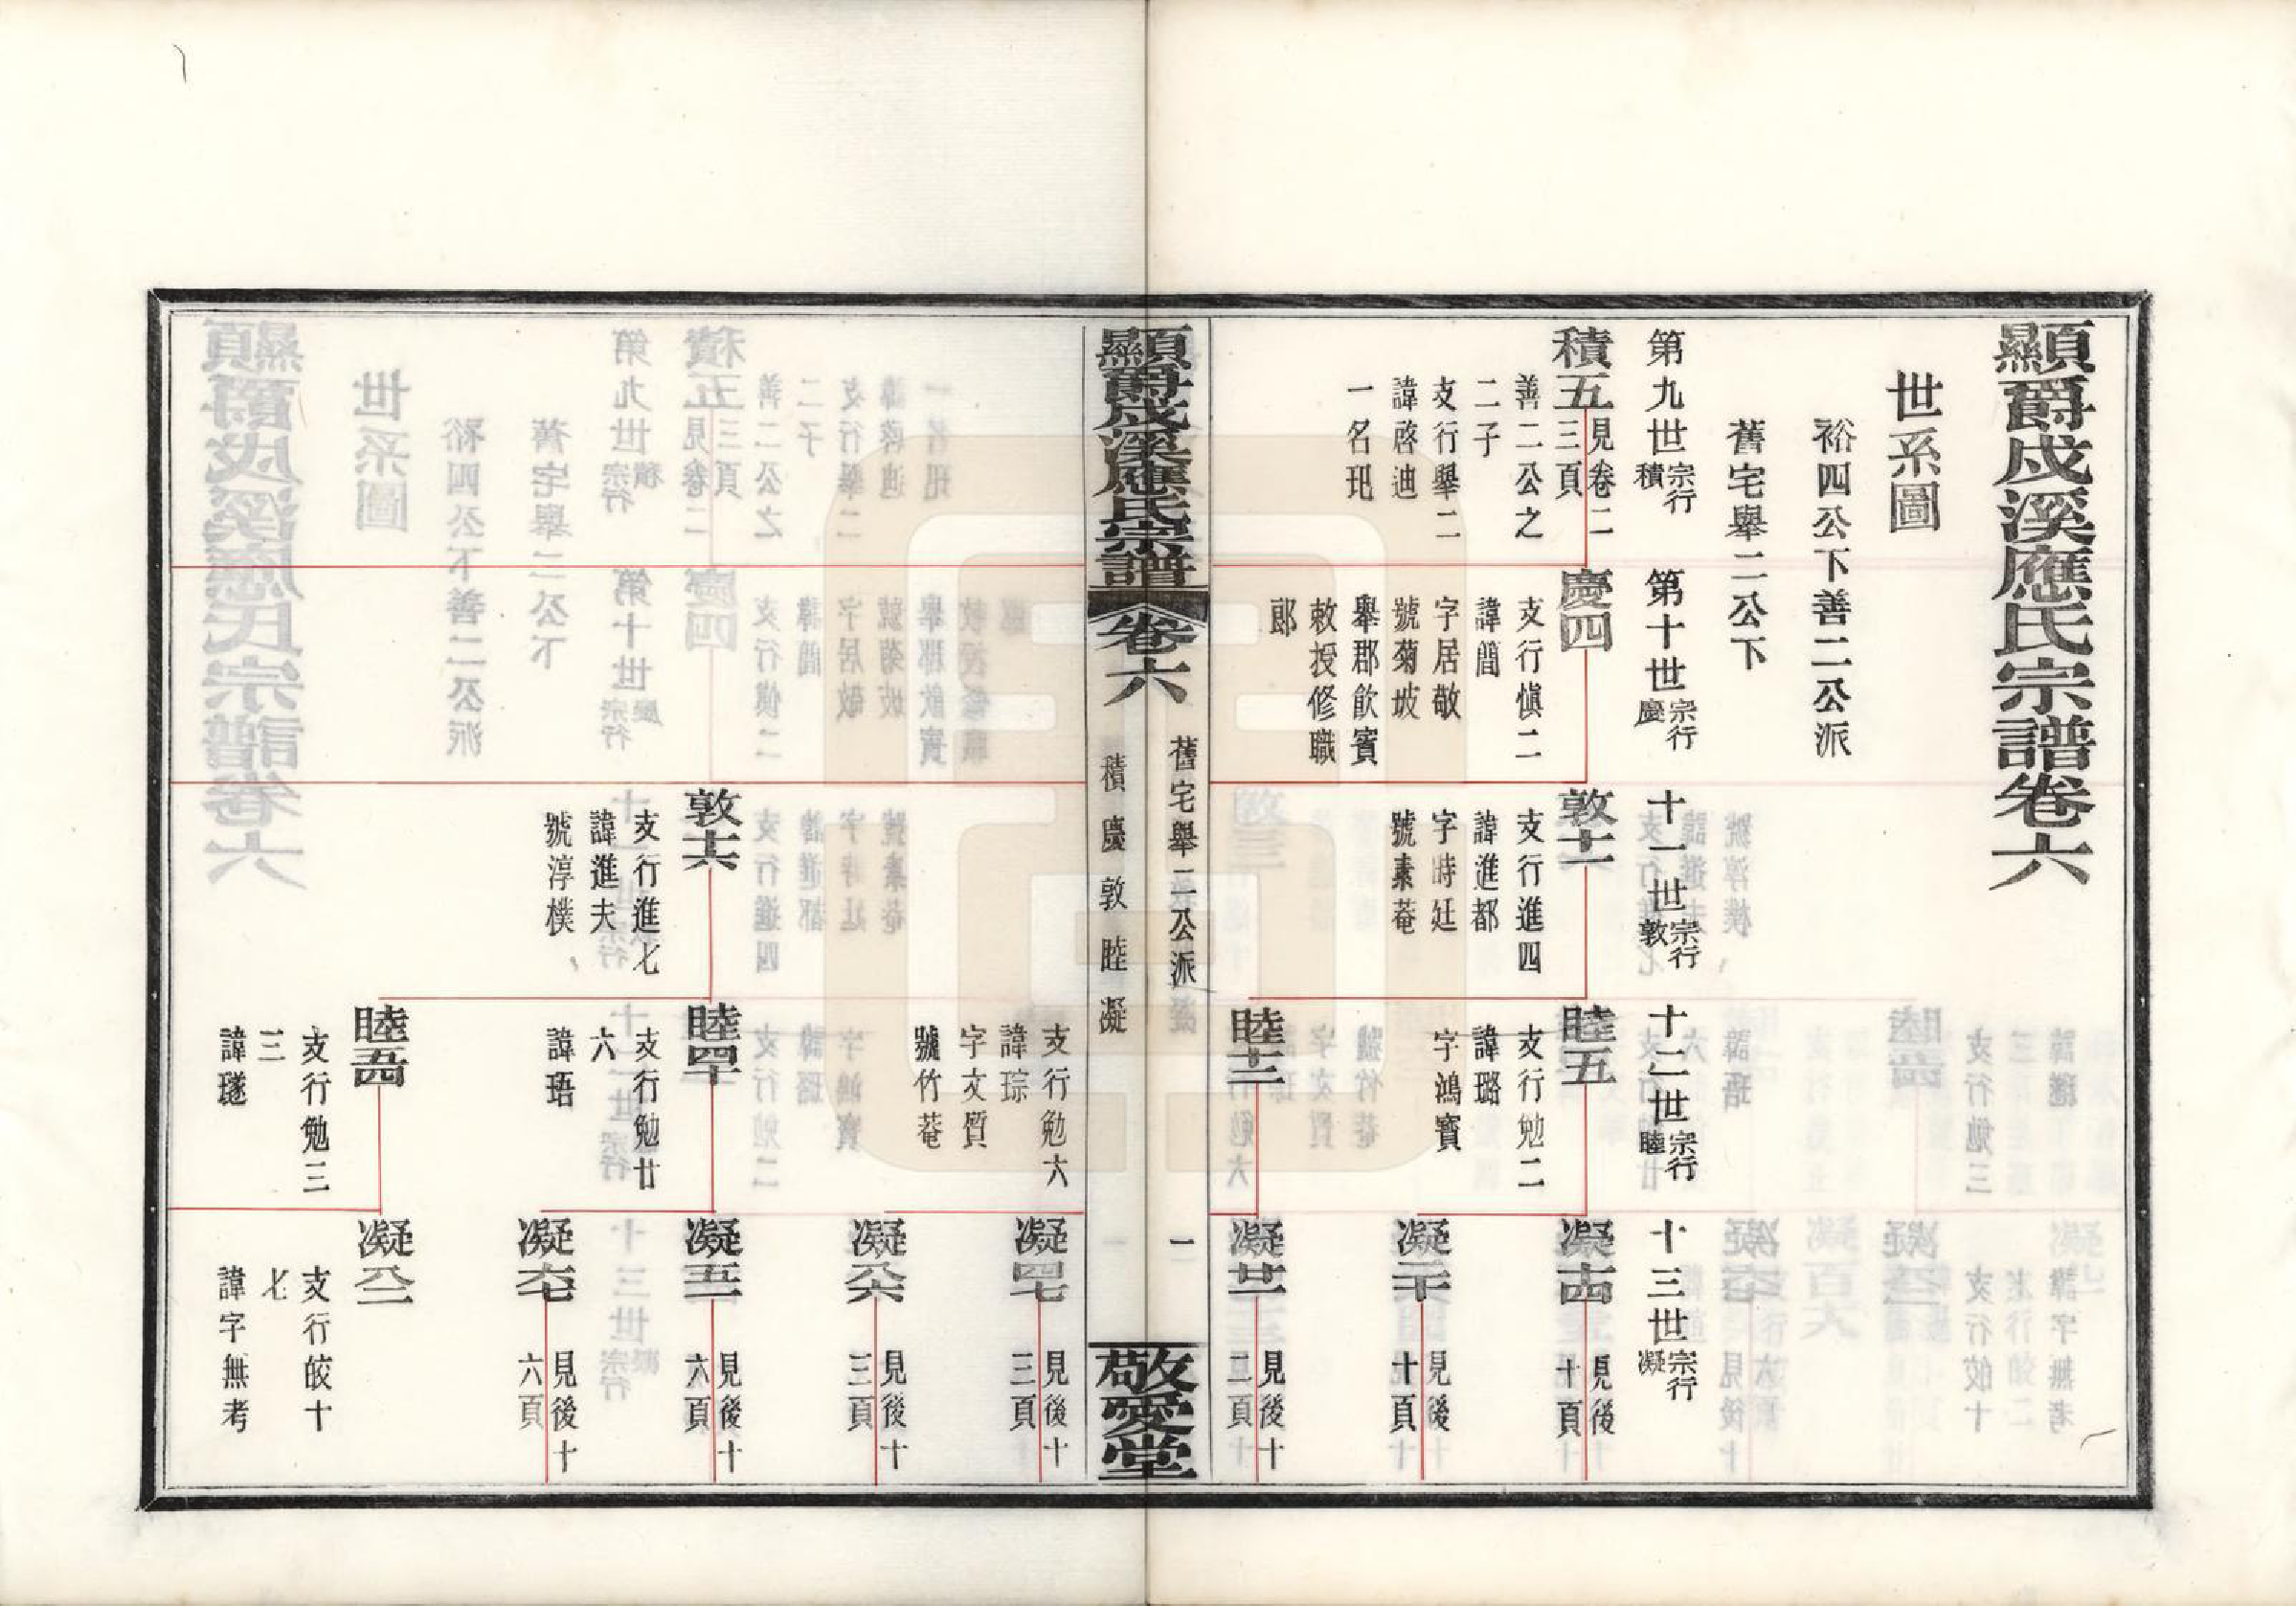 顯爵戍溪應氏宗譜卷六
世系圖
裕四公下善二公派
舊宅舉二公下
第九世宗行積
第十世宗行慶
十一世宗行敦
十二世宗行睦
十三世宗行凝
積五見卷二三頁
善二公之
二子
支行舉二
諱啓迪
一名玘
慶四
支行愼二
諱簡
字居敬
號菊坡
舉郡飲賓
敕授修職
郎
敦十一
支行進四
諱進都
字時廷
號素菴
睦五
支行勉二
諱璐
字鴻寶
睦十三
凝十四見後十頁
凝二十見後十頁
凝廿一見後十二頁
顯爵戍溪應氏宗譜
卷六
舊宅舉二公派
積慶敦睦凝
一
敬愛堂
支行勉六
諱琮
字文質
號竹菴
凝四七見後十三頁
凝六見後十三頁
敦十六
支行進七
諱進夫
號淳樸
睦四十
支行勉廿
六
諱珸
凝五一見後十六頁
凝六七見後十六頁
睦五四
支行勉三
三
諱璲
凝八二
支行皎十
七
諱字無考